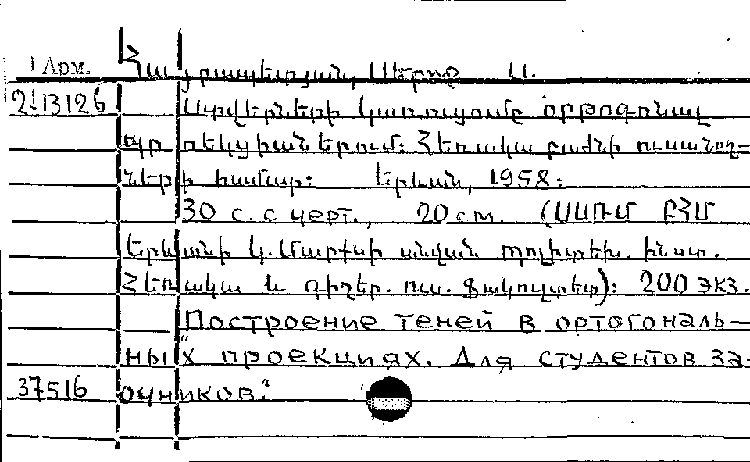 1 Арм. Հայրապետյան, Սերոժ Ա.
2ա13126 Ստվերների կառուցումը օրթոգոնալ
պրոեկցիաներում: Հեռակա բաժնի ուսանող-
ների համար: Երևան, 1958:
30 с. с черт., 20 см. (ՍՍՌՄ ԲՀՄ
Երևանի Կ. Մարքսի անվան պոլիտեխ. ինստ.
Հեռակա և գիշեր. ուս. ֆակուլտետ): 200 экз.
Построение теней в ортогональ-
ных проекциях. Для студентов за-
37516 очников."